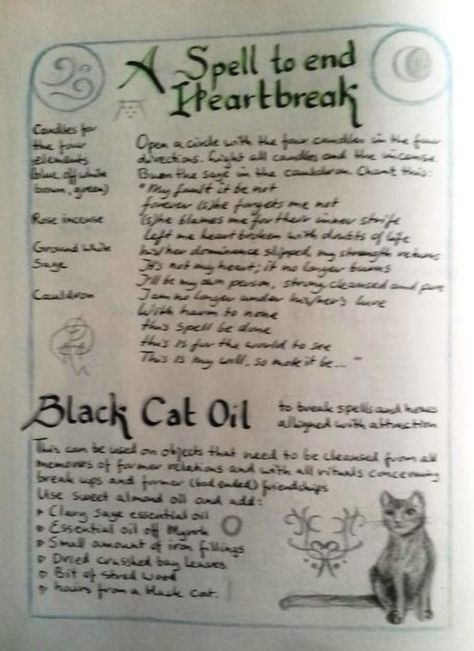 A Spell to end
Heartbreak
Candles for
the four
elements
(blue, off white
brown, green)
Rose incense
Ground white
Sage
Cauldron
Open a circle with the four candles in the four
directions. Light all candles and the incense.
Burn the sage in the cauldron. Chant this:
"My fault it be not
forever (s)he forgets me not
(s)he blames me for their inner strife
Left me heartbroken with doubts of life
his/her dominance slipped, my strength returns
It's not my heart; it no longer burns
I'll be my own person, strong, cleansed and pure
I am no longer under his/her's lure
With harm to none
this spell be done
this is for the world to see
This is my will, so mote it be..."
Black Cat Oil
to break spells and hexes
alligned with attraction
This can be used on objects that need to be cleansed from all
memories of former relations and with all rituals concerning
break ups and former (bad ended) friendships
Use sweet almond oil and add:
Clary Sage essential oil
Essential oil off Myrrh
Small amount of iron fillings
Dried crusshed bay leaves
Bit of stred wood
hairs from a black cat.